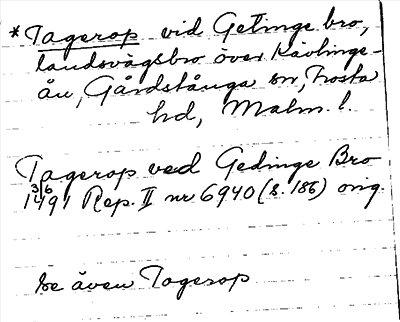 *Tagerop vid Getinge bro,
landsvägsbro över Kävlinge-
ån, Gårdstånga sn, Frosta
hd, Malm. l.
Tagerop ved Gedinge Bro
3/6
1491 Rep. II nr 6940 (s. 186) orig.
se även Togerop